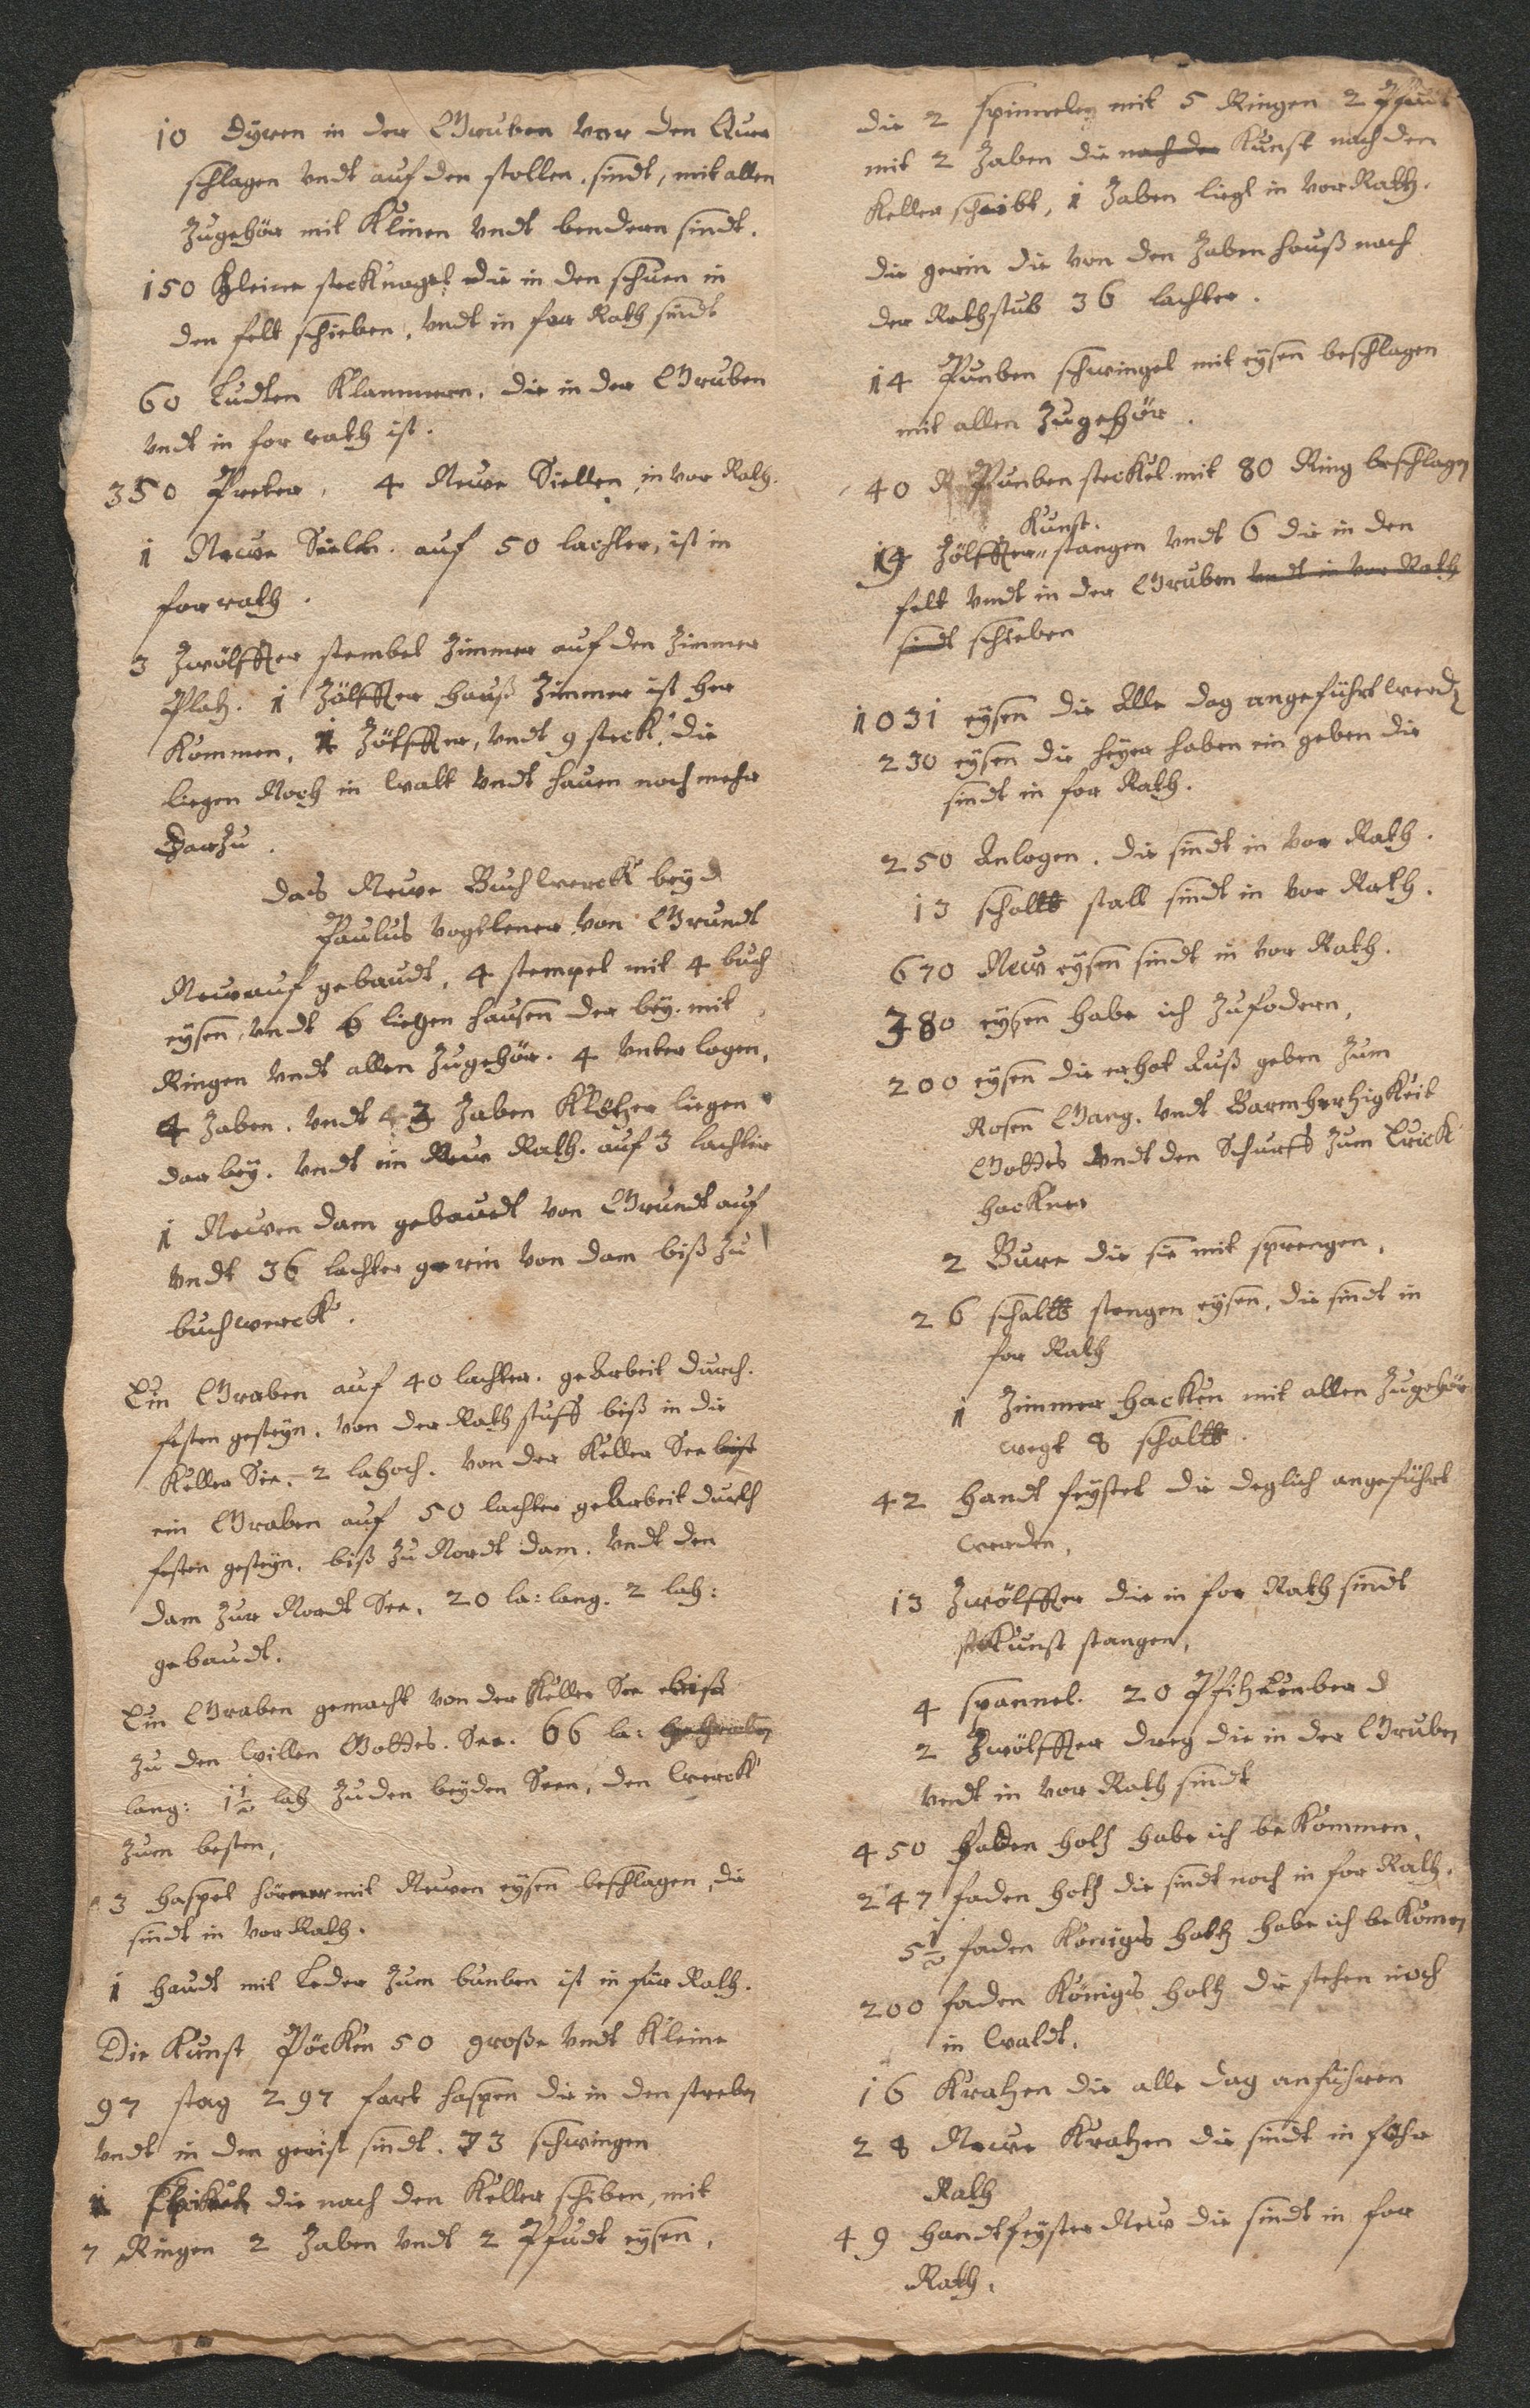 10 Dyren in der Gruben vor den Quer
schlagen vndt auf den stollen sindt, mit allen
Zugehör mit Klinen vndt bendern sindt.
150 Kleine stecknagel die in den schuen in
den felt schieben, vndt in for Rath sindt
60 Ludten Klammern, die in der Gruben
vndt in for rath ist.
350 Preter, 4 Neuve Siellen in vor Rath.
1 Neuve Sielln. auf 50 lachter, ist in
for rath.
3 Zwölffter stembel Zimmer auf den Zimmer
Platz. 1 Zölffter hauß Zimmer ist her
Kommen, 1 Zölffter, vndt 9 steck, die
liegen Noch in Walt vndt hauen noch mehr
Darzu.
das Neuve Buchwerck bey d
Paulus Vogtlener von Grundt
Neuvauf gebaudt, 4 stempel mit 4 buch
eysen, vndt 6 liegen hausen der bey. mit
Ringen vndt allen Zugehör. 4 vnter lagen,
4 Zaben. vndt 42 Zaben Klötzer liegen
dar bey. vndt ein Neuv Rath. auf 3 lachter
1 Neuven dam gebaudt von Grundt auf
vndt 36 lachter gerin von dam biß zu
buchwerck.
Ein Graben auf 40 lachter. gearbeit durch.
festen gesteyn. von der Rathstuff biß in die
Keller See. 2 la hoch. von der Keller See bist
ein Graben auf 50 lachter gearbeit durch
festen gesteyn. biß zu Nordt dam. vndt den
dam zur Nordt See, 20 la: lang. 2 lah:
gebaudt.
Ein Graben gemacht von der Keller See biß
zu den Willen Gottes. See. 66 la:
lang: 1½ lah zu den beyden Seen, den Werck
zum besten,
3 haspel hörner mit Neuven eysen beschlagen, die
sindt in vor Rath.
1 haudt mit Leder zum bunben ist in für Rath.
Die Kunst Pöcken 50 große vndt Kleine
97 stag 297 fart haspen die in den streben
vndt in den gerist sindt. 73 schwingen
1 die nach den Keller schiben, mit
7 Ringen 2 Zaben vndt 2 Pfudt eysen,
die 2 spinneley mit 5 Ringen 2 Pfudt
mit 2 Zaben die nach der Kunst nach den
Keller schibt, 1 Zaben liegt in vor Rath.
die gerin die von den Zaben hauß nach
der Rathstub 36 lachter.
14 Punben schwingel mit eysen beschlagen
mit allen Zugehör.
40 Punben steckel mit 80 Ring beschlagen
Kunst.
14 Zölffter stangen vndt 6 die in den
felt vndt in der Gruben vndt in vor Rath
sindt schieben
1031 eysen die Alle dag angeführt werden
230 eysen die heyer haben ein geben die
sindt in for Rath.
250 Anlogen. die sindt in vor Rath.
13 schaltt stall sindt in vor Rath.
670 Neuv eysen sindt in vor Rath.
380 eysen habe ich zufodern,
200 eysen die er hot Auß geben zum
Rosen Gang. vndt Barmhertzigkeit
Gottes vndt den Schurff zum Luick
hackner
2 Bure die sie mit sprengen,
26 schaltt stangen eysen, die sindt in
for Rath
1 Zimmer hacken mit allen Zugehör
wegt 8 schaltt.
42 handt feystel die deglich angeführt
werden,
13 Zwölffter die in for Rath sindt
Kunst stangen,
4 spannel. 20
2 Zwölffter dreg die in der Gruben
vndt in vor Rath sindt
450 faden holtz habe ich bekommen,
247 faden holtz die sindt noch in for Rath.
5½ faden Königs holtz habe ich bekomen
200 faden Königs holtz die stehen noch
in Waldt.
16 Kratzen die alle dag anführen
28 Neuve Kratzen die sindt in fohr
Rath
49 handtfeyster Neuv die sindt in for
Rath.